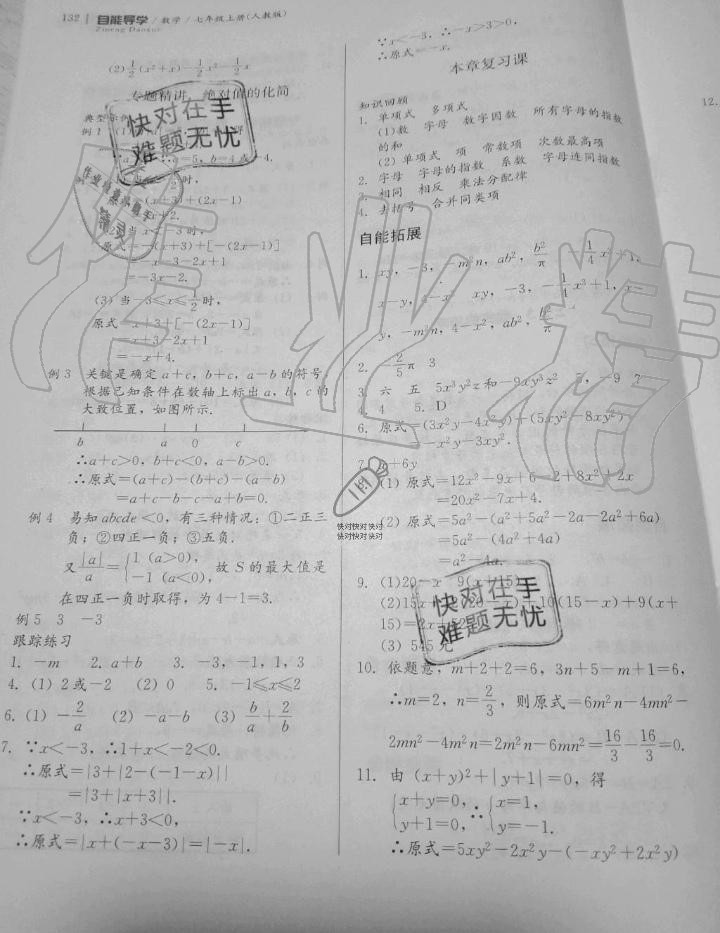 132 自能导学 / 数学 / 七年级上册(人教版)
Zineng Daoxue
(2) 1/2(x²+x)－1/2x²－1/2x
专题精讲 绝对值的化简
例1 (1)
快对在手
难题无忧
b=4或
时,
原式=(x+3)+(2x－1)
+2.
当x<－3时,
原式=－(x+3)+[－(2x－1)]
=－x－3－2x+1
=－3x－2.
(3) 当－3≤x≤1/2时,
原式=x+3+[－(2x－1)]
=x+3－2x+1
=－x+4.
例3 关键是确定a+c, b+c, a－b的符号,
根据已知条件在数轴上标出a, b, c的
大致位置, 如图所示.
b a 0 c
∴a+c>0, b+c<0, a－b>0.
∴原式=(a+c)－(b+c)－(a－b)
=a+c－b－c－a+b=0.
例4 易知abcde<0, 有三种情况: ①二正三
负; ②四正一负; ③五负.
又|a|/a={1 (a>0), －1 (a<0), 故S的最大值是
在四正一负时取得, 为4－1=3.
例5 3 －3
跟踪练习
1. －m 2. a+b 3. －3, －1, 1, 3
4. (1) 2或－2 (2) 0 5. －1≤x≤2
6. (1) －2/a (2) －a－b (3) b/a+2/b
7. ∵x<－3, ∴1+x<－2<0.
∴原式=|3+|2－(－1－x)||
=|3+|x+3||.
∵x<－3, ∴x+3<0,
∴原式=|x+(－x－3)|=|－x|.
∵x<－3, ∴－x>3>0,
∴原式=－x.
本章复习课
知识回顾
1. 单项式 多项式
(1)数 字母 数字因数 所有字母的指数
的和
(2) 单项式 项 常数项 次数最高项
2. 字母 字母的指数 系数 字母连同指数
3. 相同 相反 乘法分配律
4. 去括号 合并同类项
自能拓展
1. xy, －3, －m²n, ab², b²/π －1/4x³+1,
x－y, 4－x² xy, －3, －1/4x³+1, x－
y, －m²n, 4－x², ab², b²/π
2. －2/5π 3
3. 六 五 5x³y²z和－9xy³z² 5, －9 7
4. 4 5. D
6. 原式=(3x²y－4x²y)+(5xy²－8xy²)
=－x²y－3xy².
7. +6y
(1) 原式=12x²－9x+6－2+8x²+2x
=20x²－7x+4.
(2) 原式=5a²－(a²+5a²－2a－2a²+6a)
=5a²－(4a²+4a)
=a²－4a.
快对快对快对
快对快对快对
9. (1)20－x 9(x+15)
(2)15x +10(15－x)+9(x+
15)=2x+
(3) 545元
快对在手
难题无忧
10. 依题意, m+2+2=6, 3n+5－m+1=6,
∴m=2, n=2/3, 则原式=6m²n－4mn²－
2mn²－4m²n=2m²n－6mn²=16/3－16/3=0.
11. 由(x+y)²+|y+1|=0, 得
{x+y=0, y+1=0, ∵{x=1, y=－1.
∴原式=5xy²－2x²y－(－xy²+2x²y)
12.
作业精